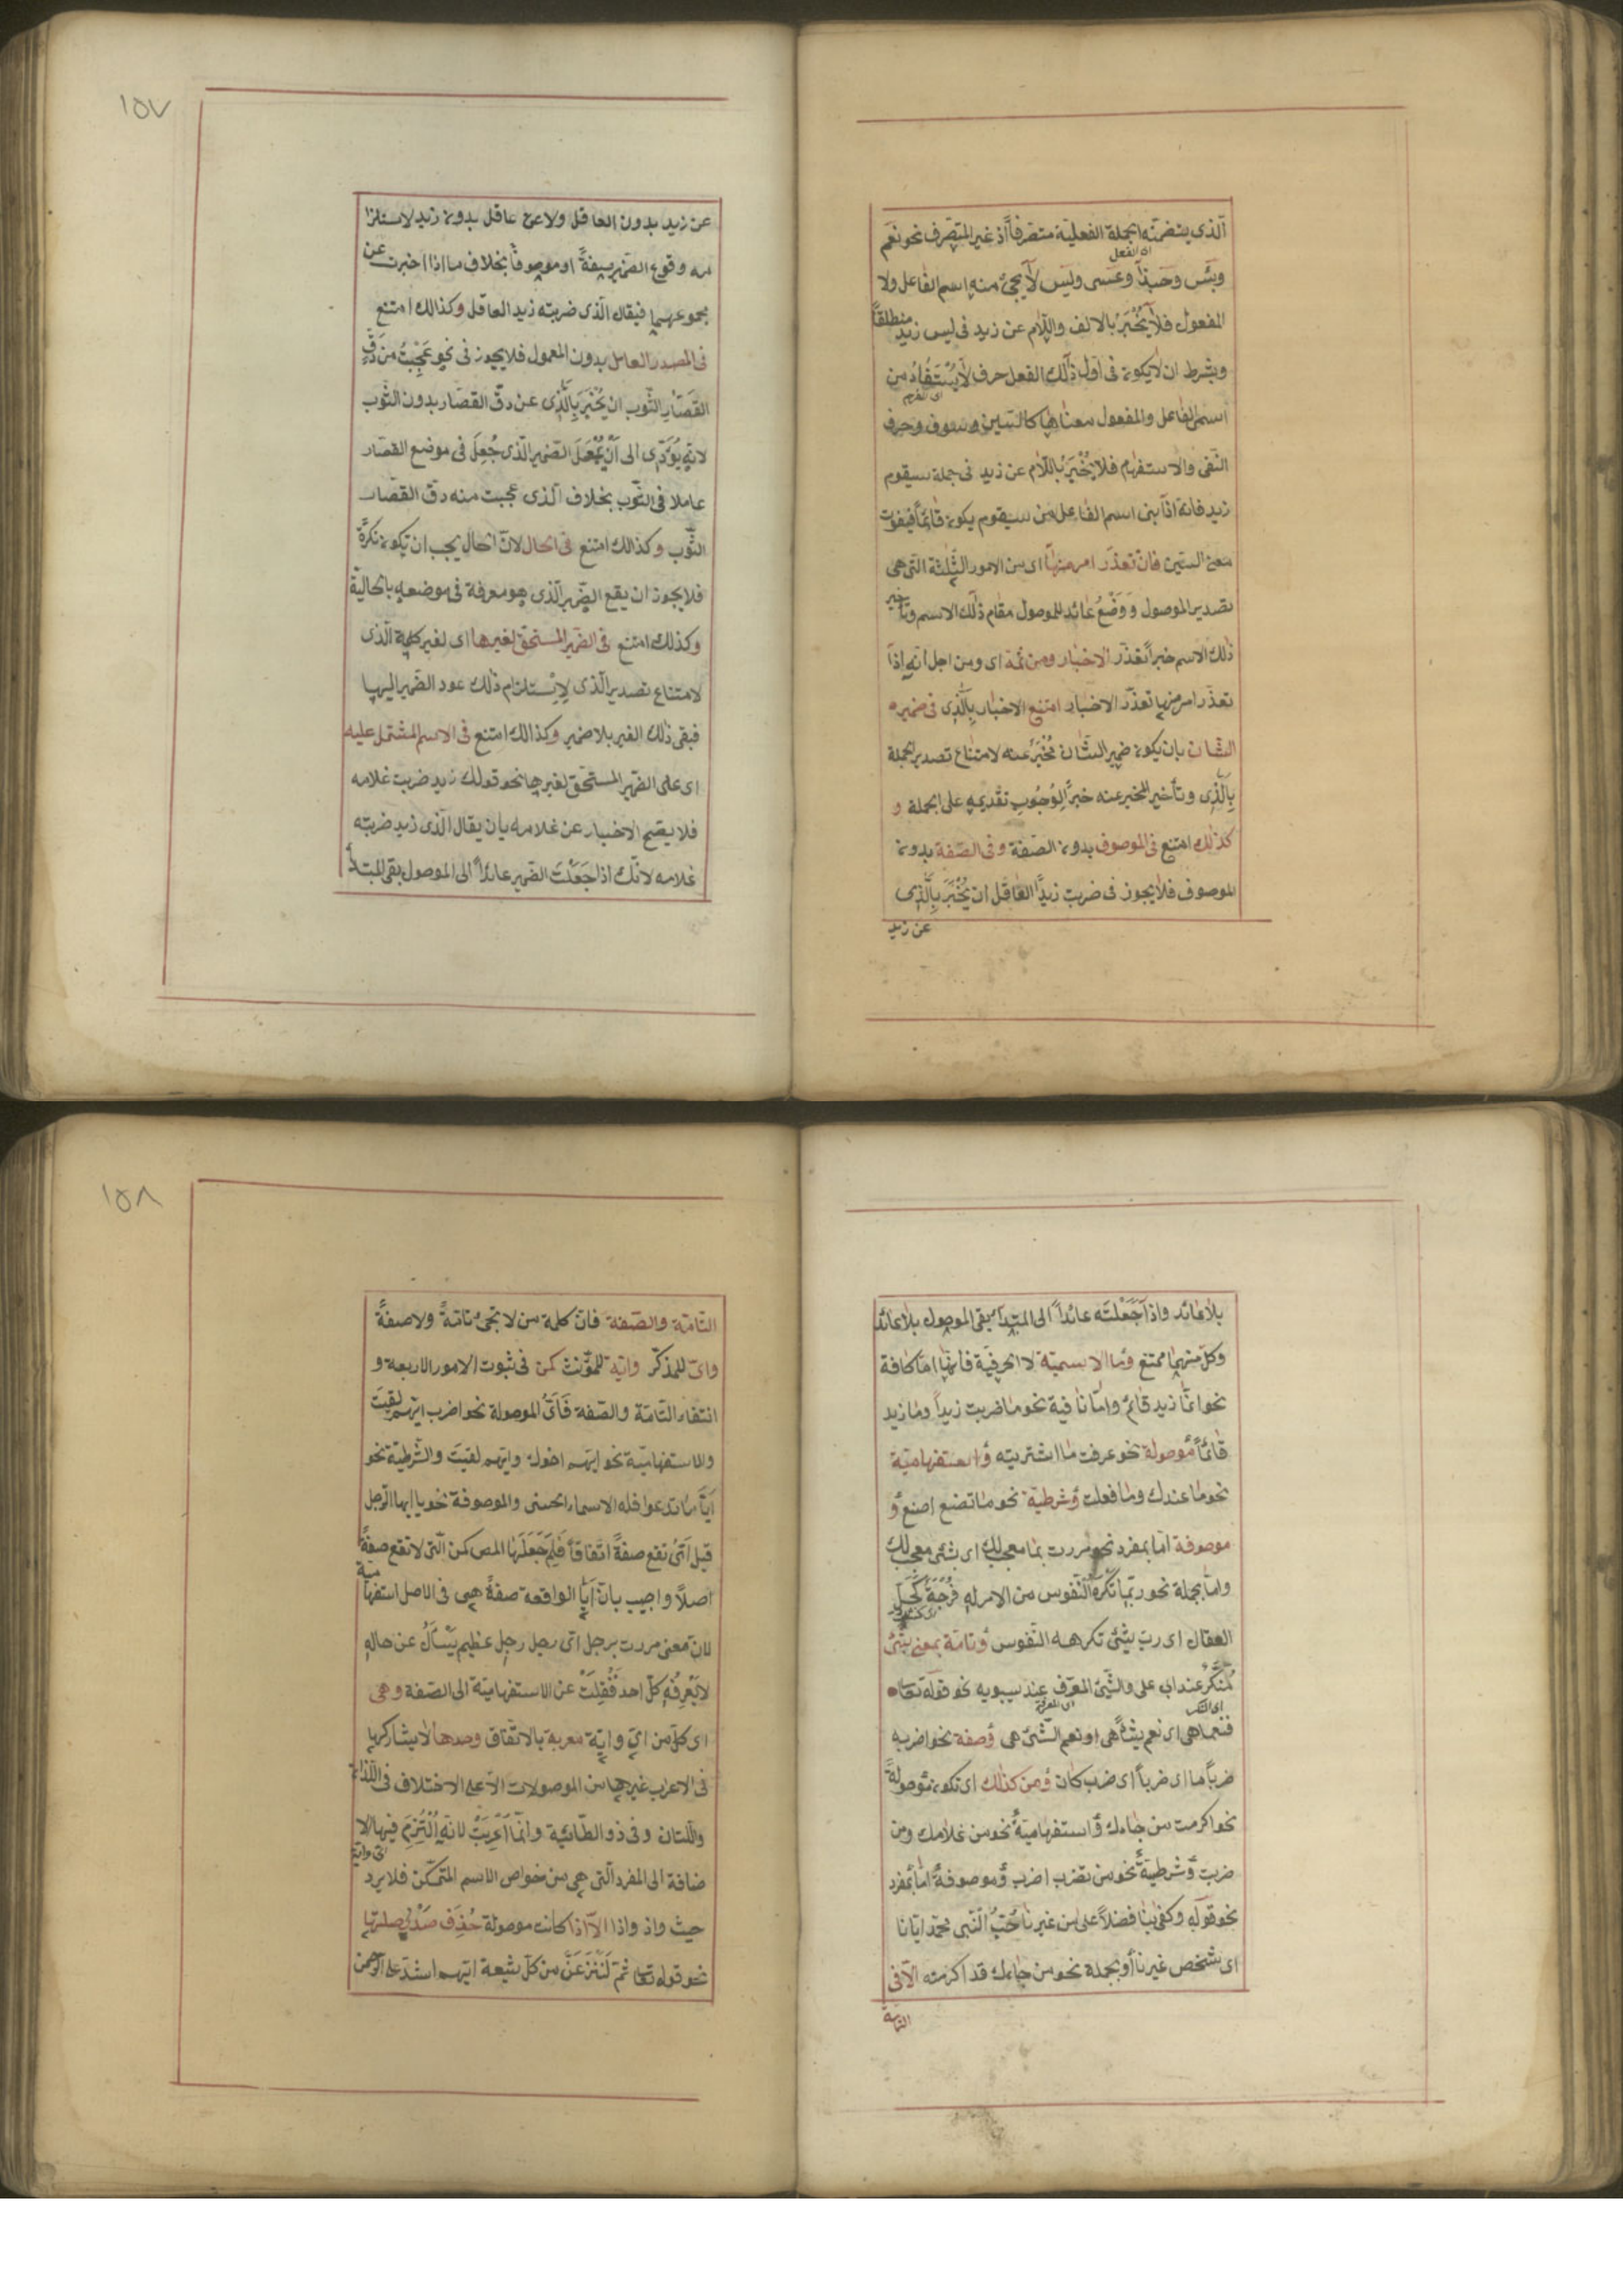 الّذى يتضمّنه الجملة الفعليّة متصرّفاً اذ غير المتصرّف نحو نعم
اى الفعل
وبئس وحبّذا وعسى وليس لا يجئ منه اسم الفاعل ولا
المفعول فلا يُخْبَرُ بالالف واللّام عن زيد فى ليس زيد منطلقاً
وبشرط ان لا يكون فى اوّل ذلك الفعل حرف لا يُسْتَفَادُ من
اسمى الفاعل والمفعول معناها كالسّين وسوف وحرف
النّفى والاستفهام فلا يُخْبَرُ باللّام عن زيد فى جملة سيقوم
زيد فانه اذا بنى اسم الفاعل من سيقوم يكون قائماً فيفوت
معنى السّين فان تعذّر امر منها اى من الامور الثّلثة التى هى
تصدير الموصول وَوَضْعُ عائد للموصول مقام ذلك الاسم وتأخير
ذلك الاسم خبراً تعذّر الاخبار ومن ثمّة اى ومن اجل انّه اذا
تعذّر امر منها تعذّر الاخبار امتنع الاخبار بِالَّذِى فى ضمير
الشّان بان يكون ضمير الشّان مُخْبَراً عنه لامتناع تصدير الجملة
بِالَّذِى وتأخير المخبر عنه خبراً لِوُجُوبِ تقديمه على الجملة و
كذلك امتنع فى الموصوف بدون الصّفة وفى الصّفة بدون
الموصوف فلا يجوز فى ضربت زيداً العاقل ان يُخْبَرَ بِالَّذِى
عن زيد
١٥٧
عن زيد بدون العاقل ولا عن عاقل بدون زيد لاستلزا
مه وقوع الضّمير صفةً او موصوفاً بخلاف ما اذا اخبرت عن
مجموعهما فيقال الّذى ضربته زيد العاقل وكذالك امتنع
فى المصدر العامل بدون المعمول فلا يجوز فى نحو عَجِبْتُ من دَقِّ
القَصَّارِ الثّوب ان يُخْبَرَ بِالَّذِى عن دقّ القصّار بدون الثّوب
لانّه يُؤَدّى الى اَنْ يَعْمَلَ الضّمير الّذى جُعِلَ فى موضع القصّار
عاملا فى الثّوب بخلاف الّذى عجبت منه دقّ القصّار
الثّوب وكذالك امتنع فى الحال لانّ الحال يجب ان تكون نكرةً
فلا يجوز ان يقع الضّمير الّذى هو معرفة فى موضعه بالحاليّة
وكذلك امتنع فى الضّمير المستحقّ لغيرها اى لغير كلمة الّذى
لامتناع تصدير الّذى لاِسْتلزام ذلك عود الضّمير اليها
فبقى ذلك الغير بلا ضمير وكذالك امتنع فى الاسم المشتمل عليه
اى على الضّمير المستحقّ لغيرها نحو قولك زيد ضربت غلامه
فلا يصحّ الاخبار عن غلامه بان يقال الّذى زيد ضربته
غلامه لانّك اذا جَعَلْتَ الضّمير عائداً الى الموصول بقى المبتدأ
بلا عائد واذا جَعَلْتَه عائداً الى المبتدأ بقى الموصول بلا عائد
وكلّ منهما ممتنع وما الاسميّة لا الحرفيّة فانّها امّا كافة
نحو انّما زيد قائم وامّا نافية نحو ما ضربت زيداً وما زيد
قائماً موصولة نحو عرفت ما اشتريته وَاستفهاميّة
نحو ما عندك وما فعلت وَشرطيّة نحو ما تصنع اصنع وَ
موصوفة امّا بمفرد نحو مررت بما معجب لك اى شئ معجب لك
وامّا بجملة نحو ربّما تكره النّفوس من الامر له فُرْجَةٌ كَحَلِّ
العقال اى ربّ شئ تكرهه النّفوس وَتامّة بمعنى شئ
مُنَكَّرٌ عند ابى على والشّئ المعرّف عند سيبويه نحو قوله تعا
اى المعرفة
فنعمّا هى اى نعم شيئاً هى او نعم الشّئ هى وَصفة نحو اضربه
ضرباً ما اى ضرباً اىّ ضرب كان وَمن كذلك اى تكون موصولةً
نحو اكرمت من جاءك وَاستفهاميّةً نحو من غلامك ومن
ضربت وَشرطيّةً نحو من تضرب اضرب وَموصوفةً امّا بمفرد
نحو قوله وكفى بنا فضلاً على من غيرنا حُبُّ النّبى محمّد ايّانا
اى شخص غيرنا او بجملة نحو من جاءك قد اكرمته الّا فى
التامة
١٥٨
التّامّة والصّفة فانّ كلمة من لا تجئ تامّةً ولا صفةً
واىّ للمذكّر وايّة للمؤنّث كمن فى ثبوت الامور الاربعة و
انتفاء التّامّة والصّفة فَاَىُّ الموصولة نحو اضرب ايّهم لقيت
والاستفهاميّة نحو ايّهم اخوك وايّهم لقيت والشّرطيّة نحو
ايّاً ما تدعوا فله الاسماء الحسنى والموصوفة نحو يا ايها الرّجل
قيل اىّ تقع صفةً اتفاقاً فَلِمَ جَعَلَهَا المص كمن الّتى لا تقع صفةً
اصلاً واجيب بانّ ايّاً الواقعة صفةً هى فى الاصل استفهامية
لانّ معنى مررت برجل اىّ رجل رجل عظيم يُسْأَلُ عن حاله
لا يَعْرِفُه كلّ احد فَنُقِلَتْ عن الاستفهاميّة الى الصّفة وهى
اى كلّ من اىّ وايّة معربة بالاتّفاق وحدها لا يشاركها
فى الاعراب غيرها من الموصولات الّا على الاختلاف فى اللّذان
واللّتان وفى ذو الطّائيّة وانّما اُعْرِبَتْ لانّه اُلْتُزِمَ فيها الا
ضافة الى المفرد الّتى هى من خواصّ الاسم المتمكّن فلا يرد
حيث واذ واذا الّا اذا كانت موصولة حُذِفَ صَدْرُ صلتها
نحو قوله تعا ثمّ لَنَنْزِعَنَّ من كلّ شيعة ايّهم اشدّ على الرّحمن